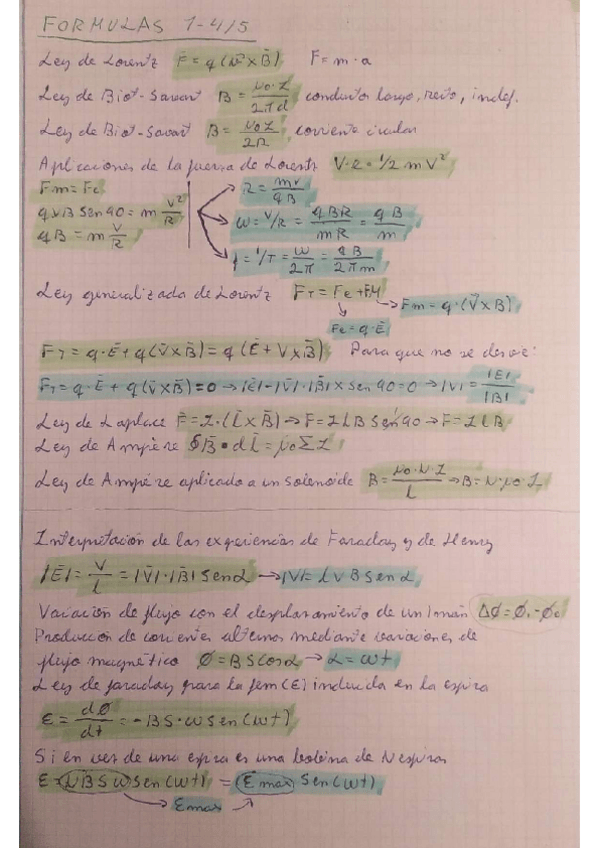 FORMULAS 1-4/5
Ley de Lorentz F̄ = q(v̄ x B̄) F = m·a
Ley de Biot-Savart B = μ0·I/2πd conductor largo, recto, indef.
Ley de Biot-Savart B = μ0I/2R corriente circular
Aplicaciones de la fuerza de Lorentz V·e = 1/2 m V²
Fm = Fc
qvB Sen 90 = m V²/R
qB = m V/R
R = mv/qB
ω = V/R = qBR/mR = qB/m
f = 1/T = ω/2π = qB/2πm
Ley generalizada de Lorentz FT = Fe + FM → Fm = q·(V̄xB̄)
Fe = q·Ē
FT = q·Ē + q(v̄xB̄) = q(Ē + V x B̄) Para que no se desvíe:
FT = q·Ē + q(v̄xB̄) = 0 → |E| - |V|·|B| x Sen 90 = 0 → |V| = |E|/|B|
Ley de Laplace F̄ = I·(L̄xB̄) → F = I L B Sen 90 → F = I L B
Ley de Ampère ∮B̄·dL̄ = μ0 Σ I
Ley de Ampère aplicado a un Solenoide B = μ0·N·I/L → B = N·μ0·I
Interpretación de las experiencias de Faraday y de Henry
|Ē| = V/L = |V̄|·|B̄| Senα → |V| = L v B Senα
Variación de flujo con el desplazamiento de un Imán ΔØ = Ø
Producción de corrientes alternas mediante variaciones de
flujo magnético Ø = B S cosα → α = ωt
Ley de faraday para la fem (ε) inducida en la espira
ε = dØ/dt = -B S·ω Sen(ωt)
Si en vez de una espira es una bobina de N espiras
ε = N B S ω Sen(ωt) = εmax Sen(ωt)
εmax